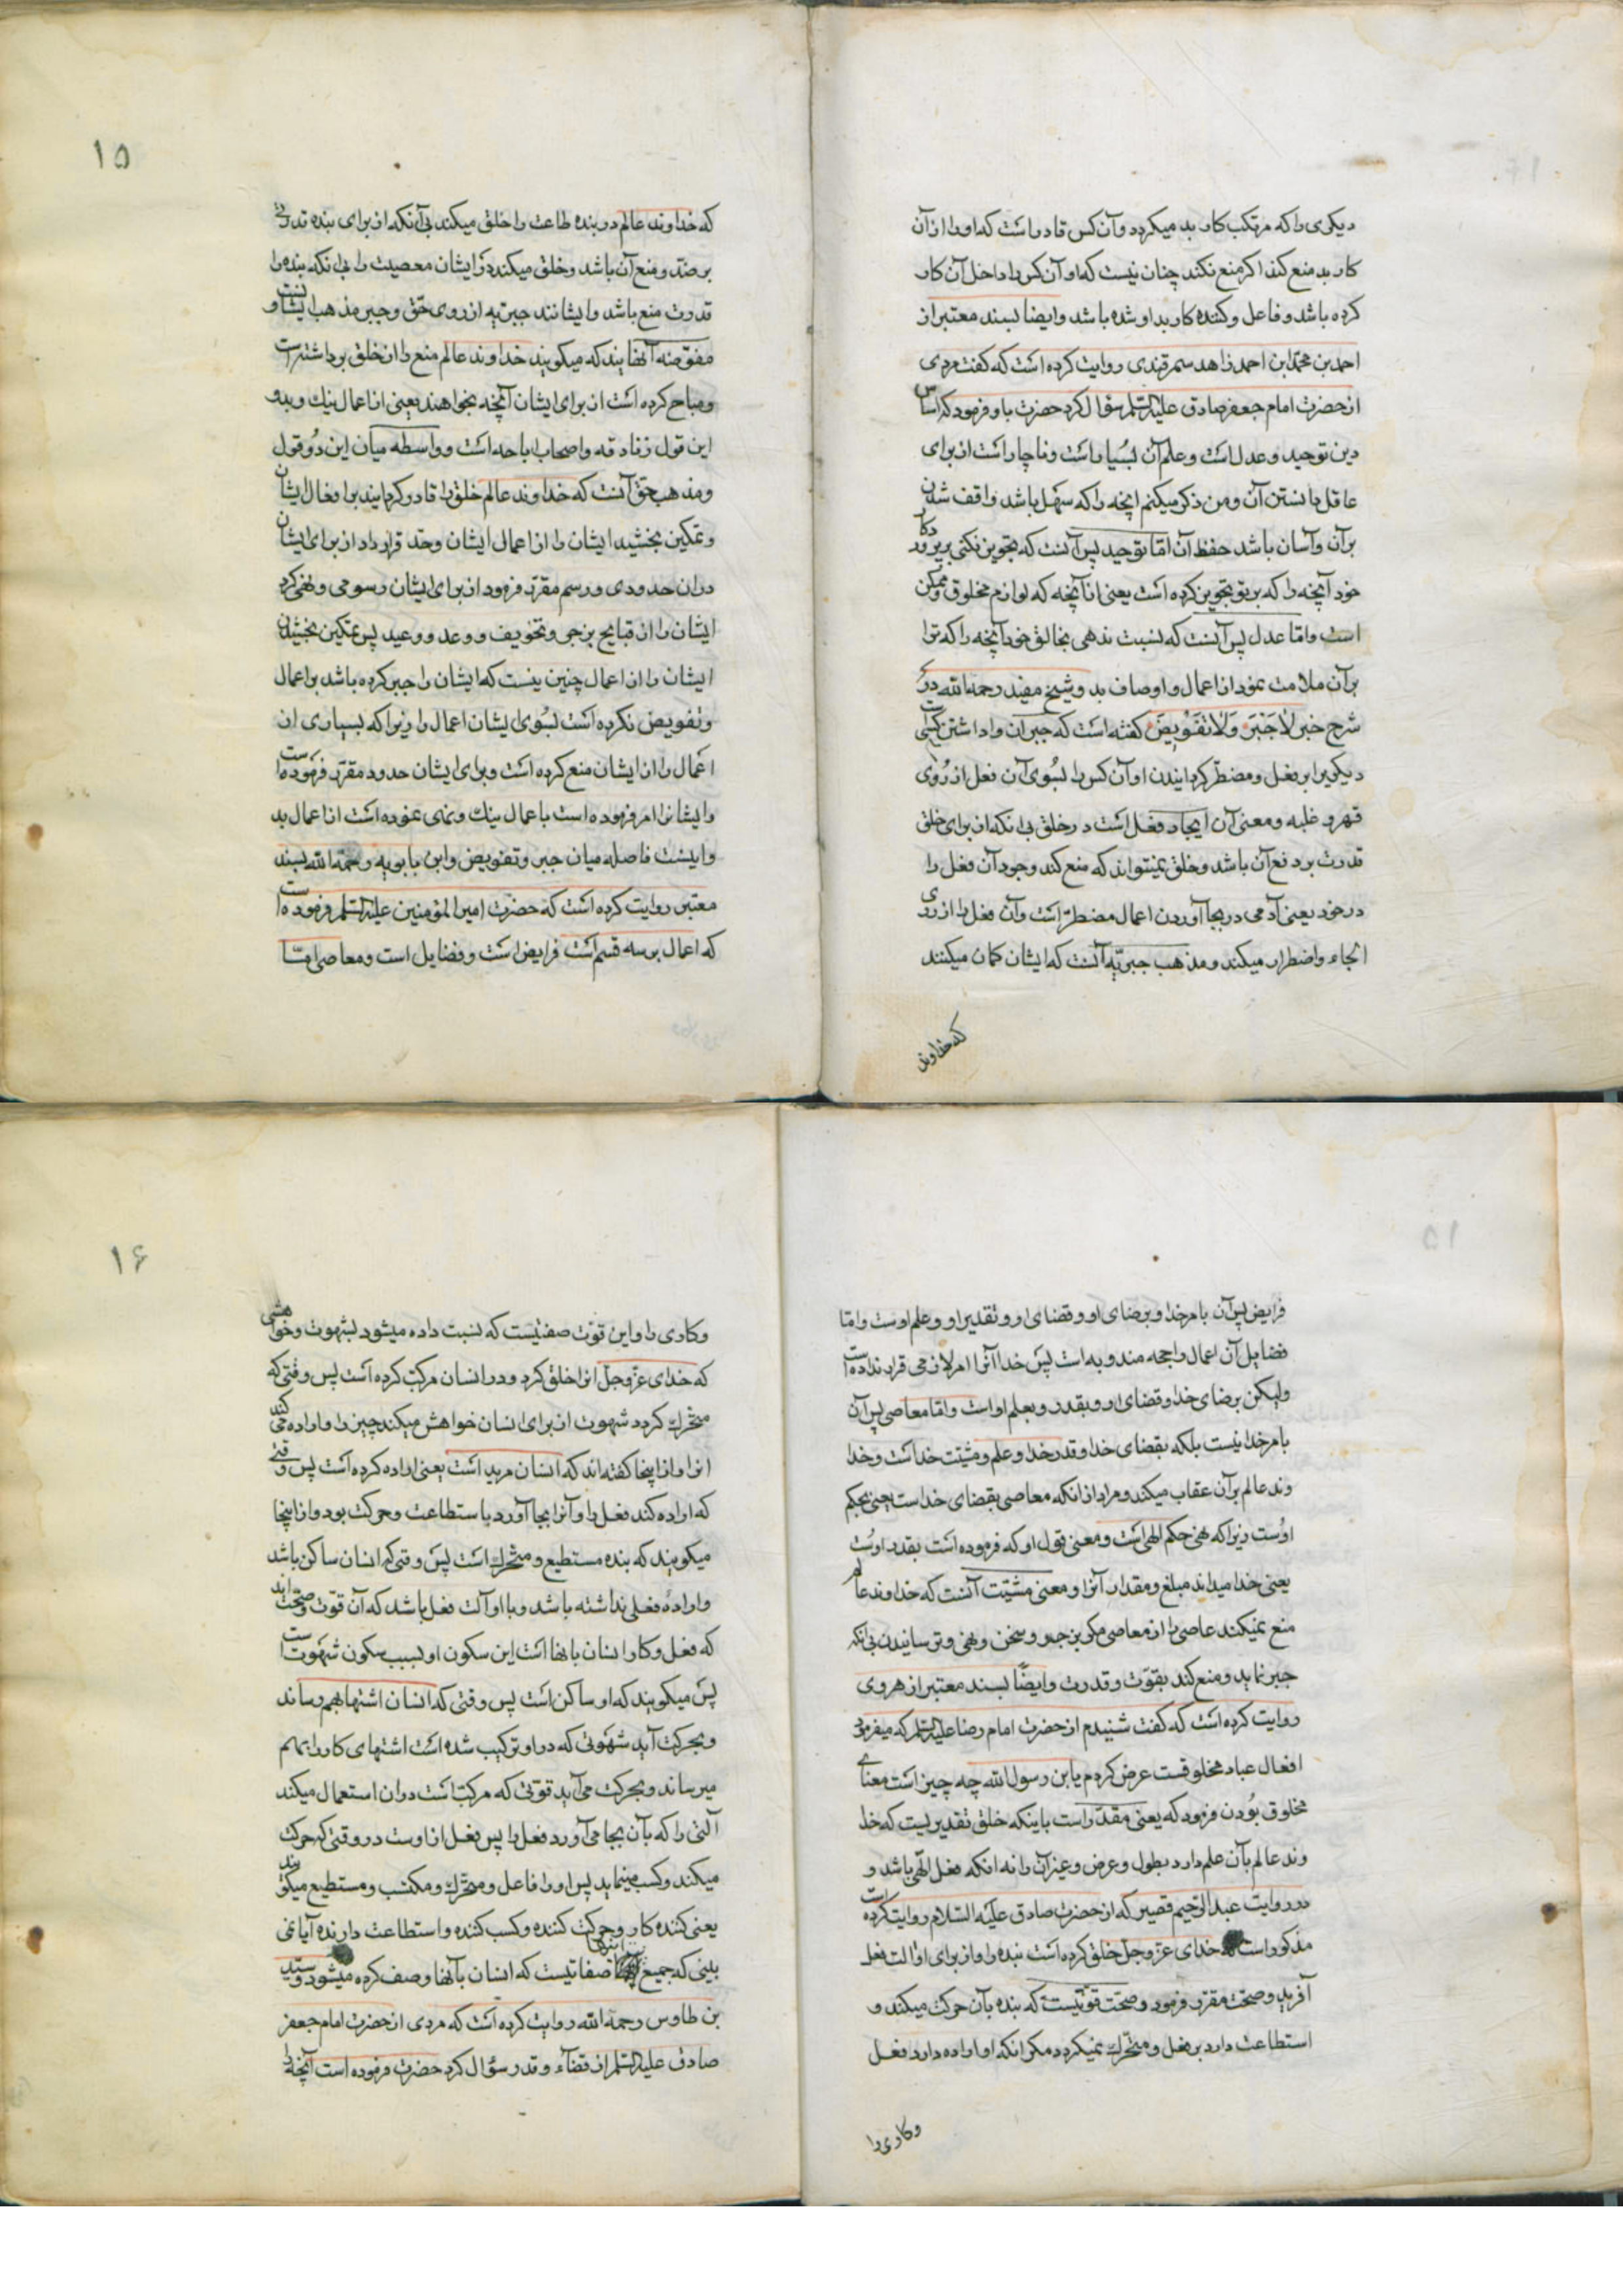 دیکری را که مرتکب کار بد میکردد و آن کس قادر است که او را از آن
کار بد منع کند اکر منع نکند چنان نیست که او آن کس را داخل آن کار
کرده باشد و فاعل و کننده کار بد او شده باشد و ایضا بسند معتبر از
احمد بن محمد ابن احمد زاهد سمرقندی روایت کرده است که کفت مردی
از حضرت امام جعفر صادق علیه السلم سؤال کرد حضرت باو فرمود که اساس
دین توحید و عدل است و علم آن بسیار است و ناچار است از برای
عاقل دانستن آن و من ذکر میکنم انچه را که سهل باشد واقف شدن
بر آن و آسان باشد حفظ آن اما توحید پس آنست که تجویز نکنی بر پروردکار
خود آنچه را که بر تو تجویز کرده است یعنی از آنچه که لوازم مخلوق و ممکن
است و اما عدل پس آنست که نسبت ندهی بخالق خود آنچه را که ترا
بر آن ملامت نمود از اعمال و اوصاف بد و شیخ مفید رحمه الله در
شرح خبر لا جَبْرَ وَ لا تَفْویضَ کفته است که جبر ان واداشتن کسی
دیکریرا بر فعل و مضطر کردانیدن او آن کس را بسوی آن فعل از روی
قهر و غلبه و معنی آن ایجاد فعل است در خلق بی انکه از برای خلق
قدرت بر دفع آن باشد و خلق نمیتواند که منع کند وجود آن فعل را
در خود یعنی آدمی در بجا آوردن اعمال مضطر است و آن فعل را از روی
الجاء و اضطرار میکند و مذهب جبریه آنست که ایشان کمان میکنند
که خداوند
۱۵
که خداوند عالم در بنده طاعت را خلق میکند بی آنکه از برای بنده قدرتی
بر ضد و منع آن باشد و خلق میکند در ایشان معصیت را بی انکه بنده را
قدرت منع باشد و ایشانند جبریه از روی حق و جبر مذهب ایشانست و
مفوضه آنهایند که میکویند خداوند عالم منع را از خلق برداشته است
و مباح کرده است از برای ایشان آنچه بخواهند یعنی از اعمال نیك و بد و
این قول زنادقه و اصحاب اباحه است و واسطه میان این دو قول
و مذهب حق آنست که خداوند عالم خلق را قادر کردانید بر افعال ایشان
و تمکین بخشید ایشان را از اعمال ایشان و حد قرار داد از برای ایشان
در ان حدودی و رسم مقرر فرمود از برای ایشان رسومی و نهی کرد
ایشان را از قبایح بزجر و تخویف و وعد و وعید پس بتمکین بخشیدن
ایشان را از اعمال چنین نیست که ایشان را جبر کرده باشد بر اعمال
و تفویض نکرده است بسوی ایشان اعمال را زیرا که بسیاری از
اعمال را از ایشان منع کرده است و برای ایشان حدود مقرر فرموده است
و ایشانرا امر فرموده است باعمال نیك و نهی نموده است از اعمال بد
و اینست فاصله میان جبر و تفویض و ابن بابویه رحمة الله بسند
معتبر روایت کرده است که حضرت امیر المؤمنین علیه السلم فرموده است
که اعمال بر سه قسم است فرایض است و فضایل است و معاصی اما
فرایض پس آن بامر خدا و برضای او و قضای او و تقدیر او و علم اوست و اما
فضایل آن اعمال راجحه مندوبه است پس خدا آنرا امر لازمی قرار نداده است
ولیکن برضای خدا و قضای او و بقدر و بعلم او است و اما معاصی پس آن
بامر خدا نیست بلکه بقضای خدا و قدر خدا و علم و مشیت خدا است و خدا
وند عالم بر آن عقاب میکند و مراد از انکه معاصی بقضای خداست یعنی بحکم
اوست زیرا که نهی حکم الهی است و معنی قول او که فرموده است بقدر اوست
یعنی خدا میداند مبلغ و مقدار آنرا و معنی مشیت آنست که خداوند عالم
منع نمیکند عاصی را از معاصی مکر بزجر و سخن و نهی و ترسانیدن بی انکه
جبر نماید و منع کند بقوت و قدرت و ایضًا بسند معتبر از هروی
روایت کرده است که کفت شنیدم از حضرت امام رضا علیه السلم که میفرمود
افعال عباد مخلوقست عرض کردم یابن رسول الله چه چیز است معنای
مخلوق بودن فرمود که یعنی مقدر است باینکه خلق تقدیریست که خدا
وند عالم بآن علم دارد بطول و عرض و غیر آن را نه انکه فعل الهی باشد و
در روایت عبد الرحیم قصیر که از حضرت صادق علیه السلام روایت کرده است
مذکور است که خدای عز و جل خلق کرده است بنده را و از برای او آلت فعل
آفرید و صحت مقرر فرمود و صحت قوتیست که بنده بآن حرکت میکند و
استطاعت دارد بر فعل و متحرك نمیکردد مکر انکه او اراده دارد فعل
و کاری را
۱۶
و کاری را و این قوت صفتیست که نسبت داده میشود بشهوت و خواهشی
که خدای عز و جل انرا خلق کرد و در انسان مرکب کرده است پس وقتی که
متحرك کردد شهوت از برای انسان خواهش میکند چیز را و اراده می کند
انرا و از اینجا کفته اند که انسان مرید است یعنی اراده کرده است پس وقتی
که اراده کند فعل را و آنرا بجا آورد باستطاعت و حرکت بود و از اینجا
میکویند که بنده مستطیع و متحرك است پس وقتی که انسان ساکن باشد
و ارادهٔ فعلی نداشته باشد و با او آلت فعل باشد که آن قوت و صحت اند
که فعل و کار انسان بانها است این سکون او بسبب سکون شهوت است
پس میکویند که او ساکن است پس وقتی که انسان اشتها بهم رساند
و بحرکت آید شهوتی که در او ترکیب شده است اشتهای کار را بهم
میرساند و بحرکت می آید قوتی که مرکب است در ان استعمال میکند
آلتی را که بآن بجا می آورد فعل را پس فعل از اوست در وقتی که حرکت
میکند و کسب مینماید پس او را فاعل و متحرك و مکتسب و مستطیع میکویند
یعنی کننده کار و حرکت کننده و کسب کننده و استطاعت دارنده آیا نمی
بینی که جمیع اینها صفاتیست که انسان بآنها وصف کرده میشود و سید
بن طاوس رحمه الله روایت کرده است که مردی از حضرت امام جعفر
صادق علیه السلم از قضاء و قدر سؤال کرد حضرت فرموده است آنچه را